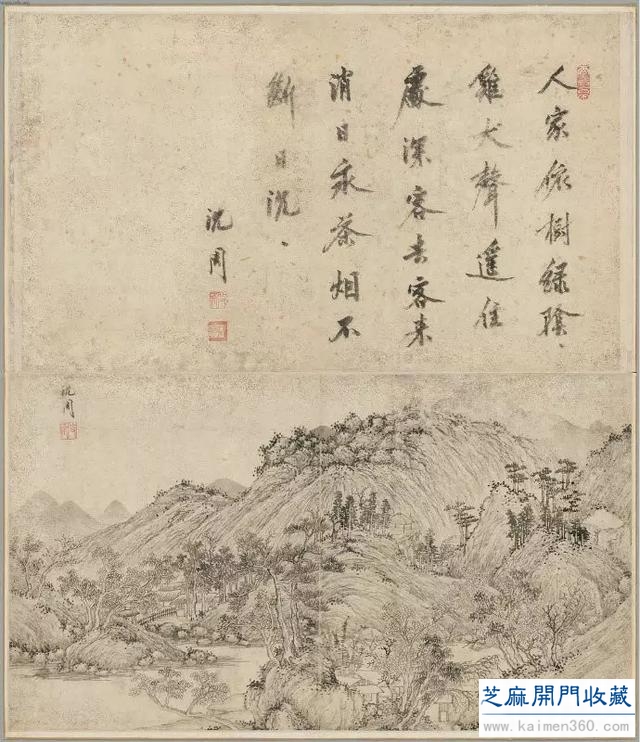 人家依樹綠陰、
雞犬聲遥住
處深客去客来
消日永茶烟不
斷日沉、
沈周
沈周
芝麻開門收藏
www.kaimen360.com